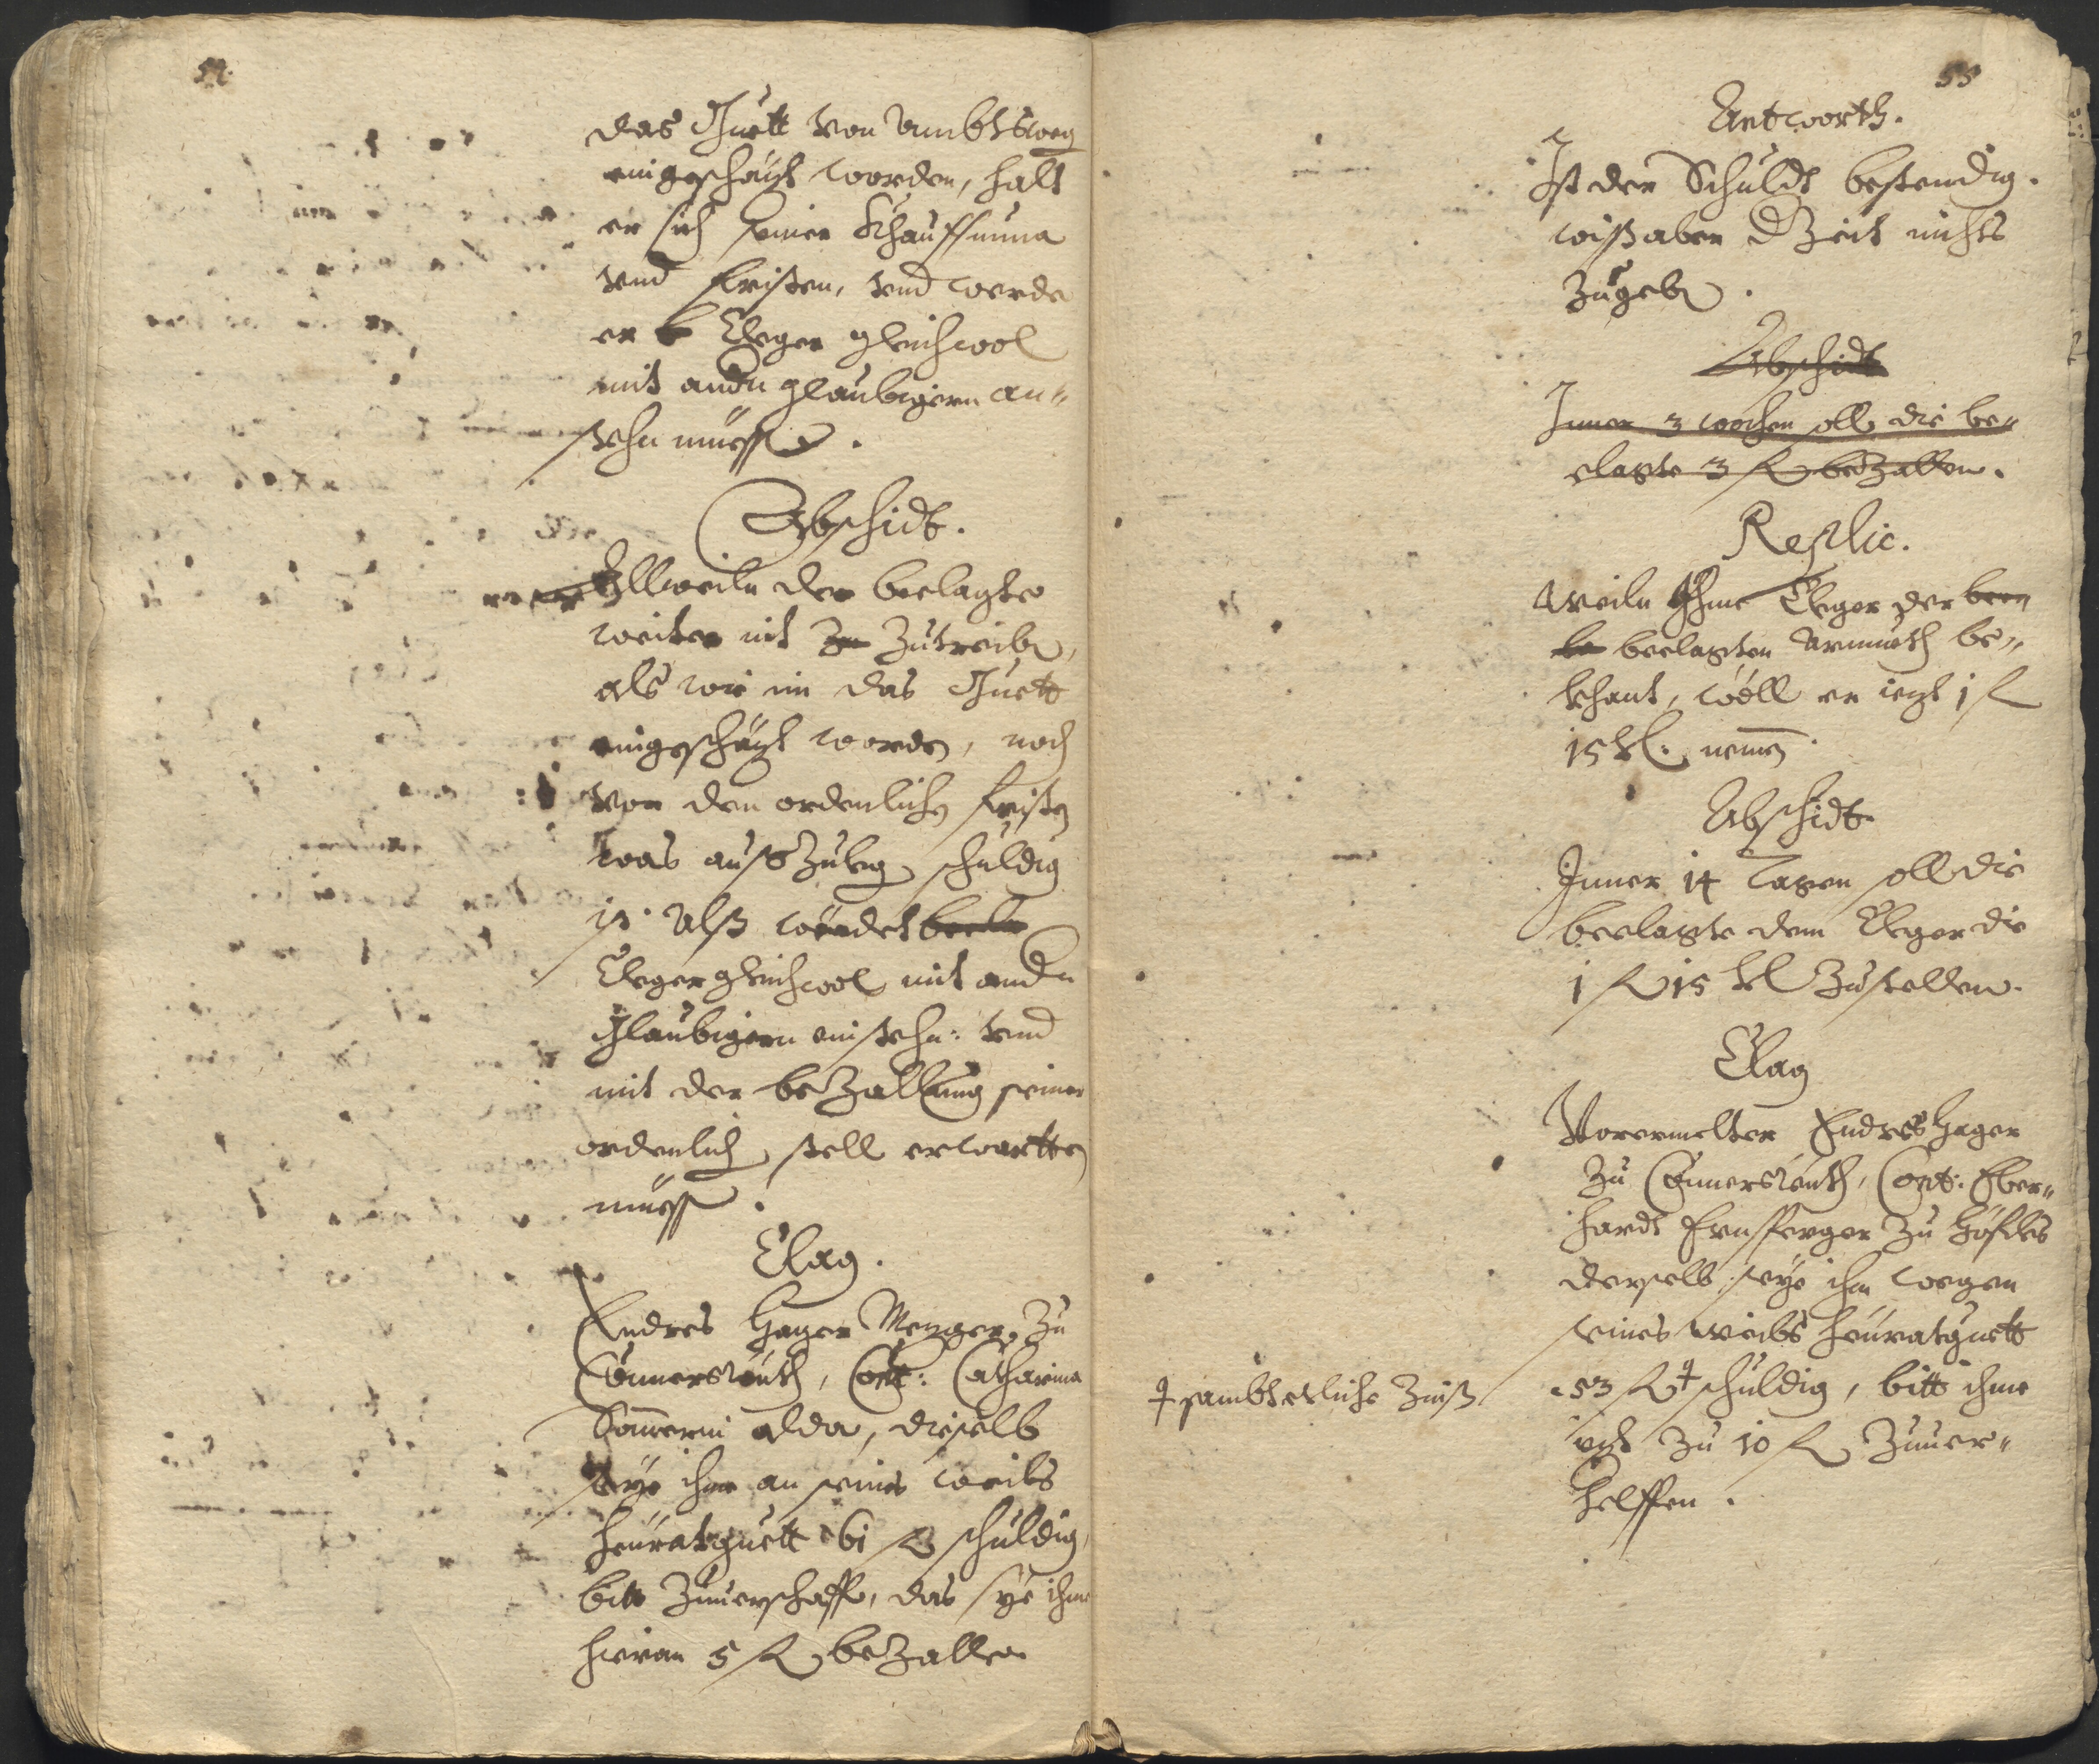 54.
das Guett von Ambtsweg
eingeschäzt worden, halt
er sich seiner Khauffsuma
vnd fristen, vnd werde
er Cleger gleichwol
mit andn glaubigern an-
stehn müessen.
Abschidt.
Allweiln der beclagte
weiter nit Zu Zutreiben,
als wie im das Guett
eingeschäzt worden, noch
von den ordenlichen fristen
was außZulegen schuldig
ist. Alß würdet becla
Cleger gleichwol mit andn
Glaubigern einstehn: vnd
mit der beZallung seiner
ordenlichen stell erwartten
müessen.
Clag.
Endres Hager Mezger Zu
Connersreuth, Contra: Catharina
Sommerin alda, dieselb
seye ihm an seines weibs
heüratguett 61 fl schuldig,
bitt Zuuerschaffen, das sye ihme
hieran 5 fl beZallen
55
Antworth.
Ist der Schuldt bestendig.
wiß aber d Zeit nichts
Zugeben.
Abschidt
Inner 3 wochen soll die be-
clagte 3 fl beZallen.
Replic.
Weiln Ihme Cleger der
beclagten Armueth be-
khant, wöll er iezt 1 fl
15 kr: nemen.
Abschidt
Inner 14 Tagen soll die
beclagte dem Cleger die
1 fl 15 kr Zustellen.
Clag
Vorermelter Endres Hager
Zu Connersreuth, Contra: Eber-
hardt Ernstperger Zu Höfles
derselb seye ihm wegen
seines weibs heüratguett
53 fl ⸸ schuldig, bitt ihme
iezt Zu 10 fl Zuuer-
helffen.
⸸ sambt etliche Zinß